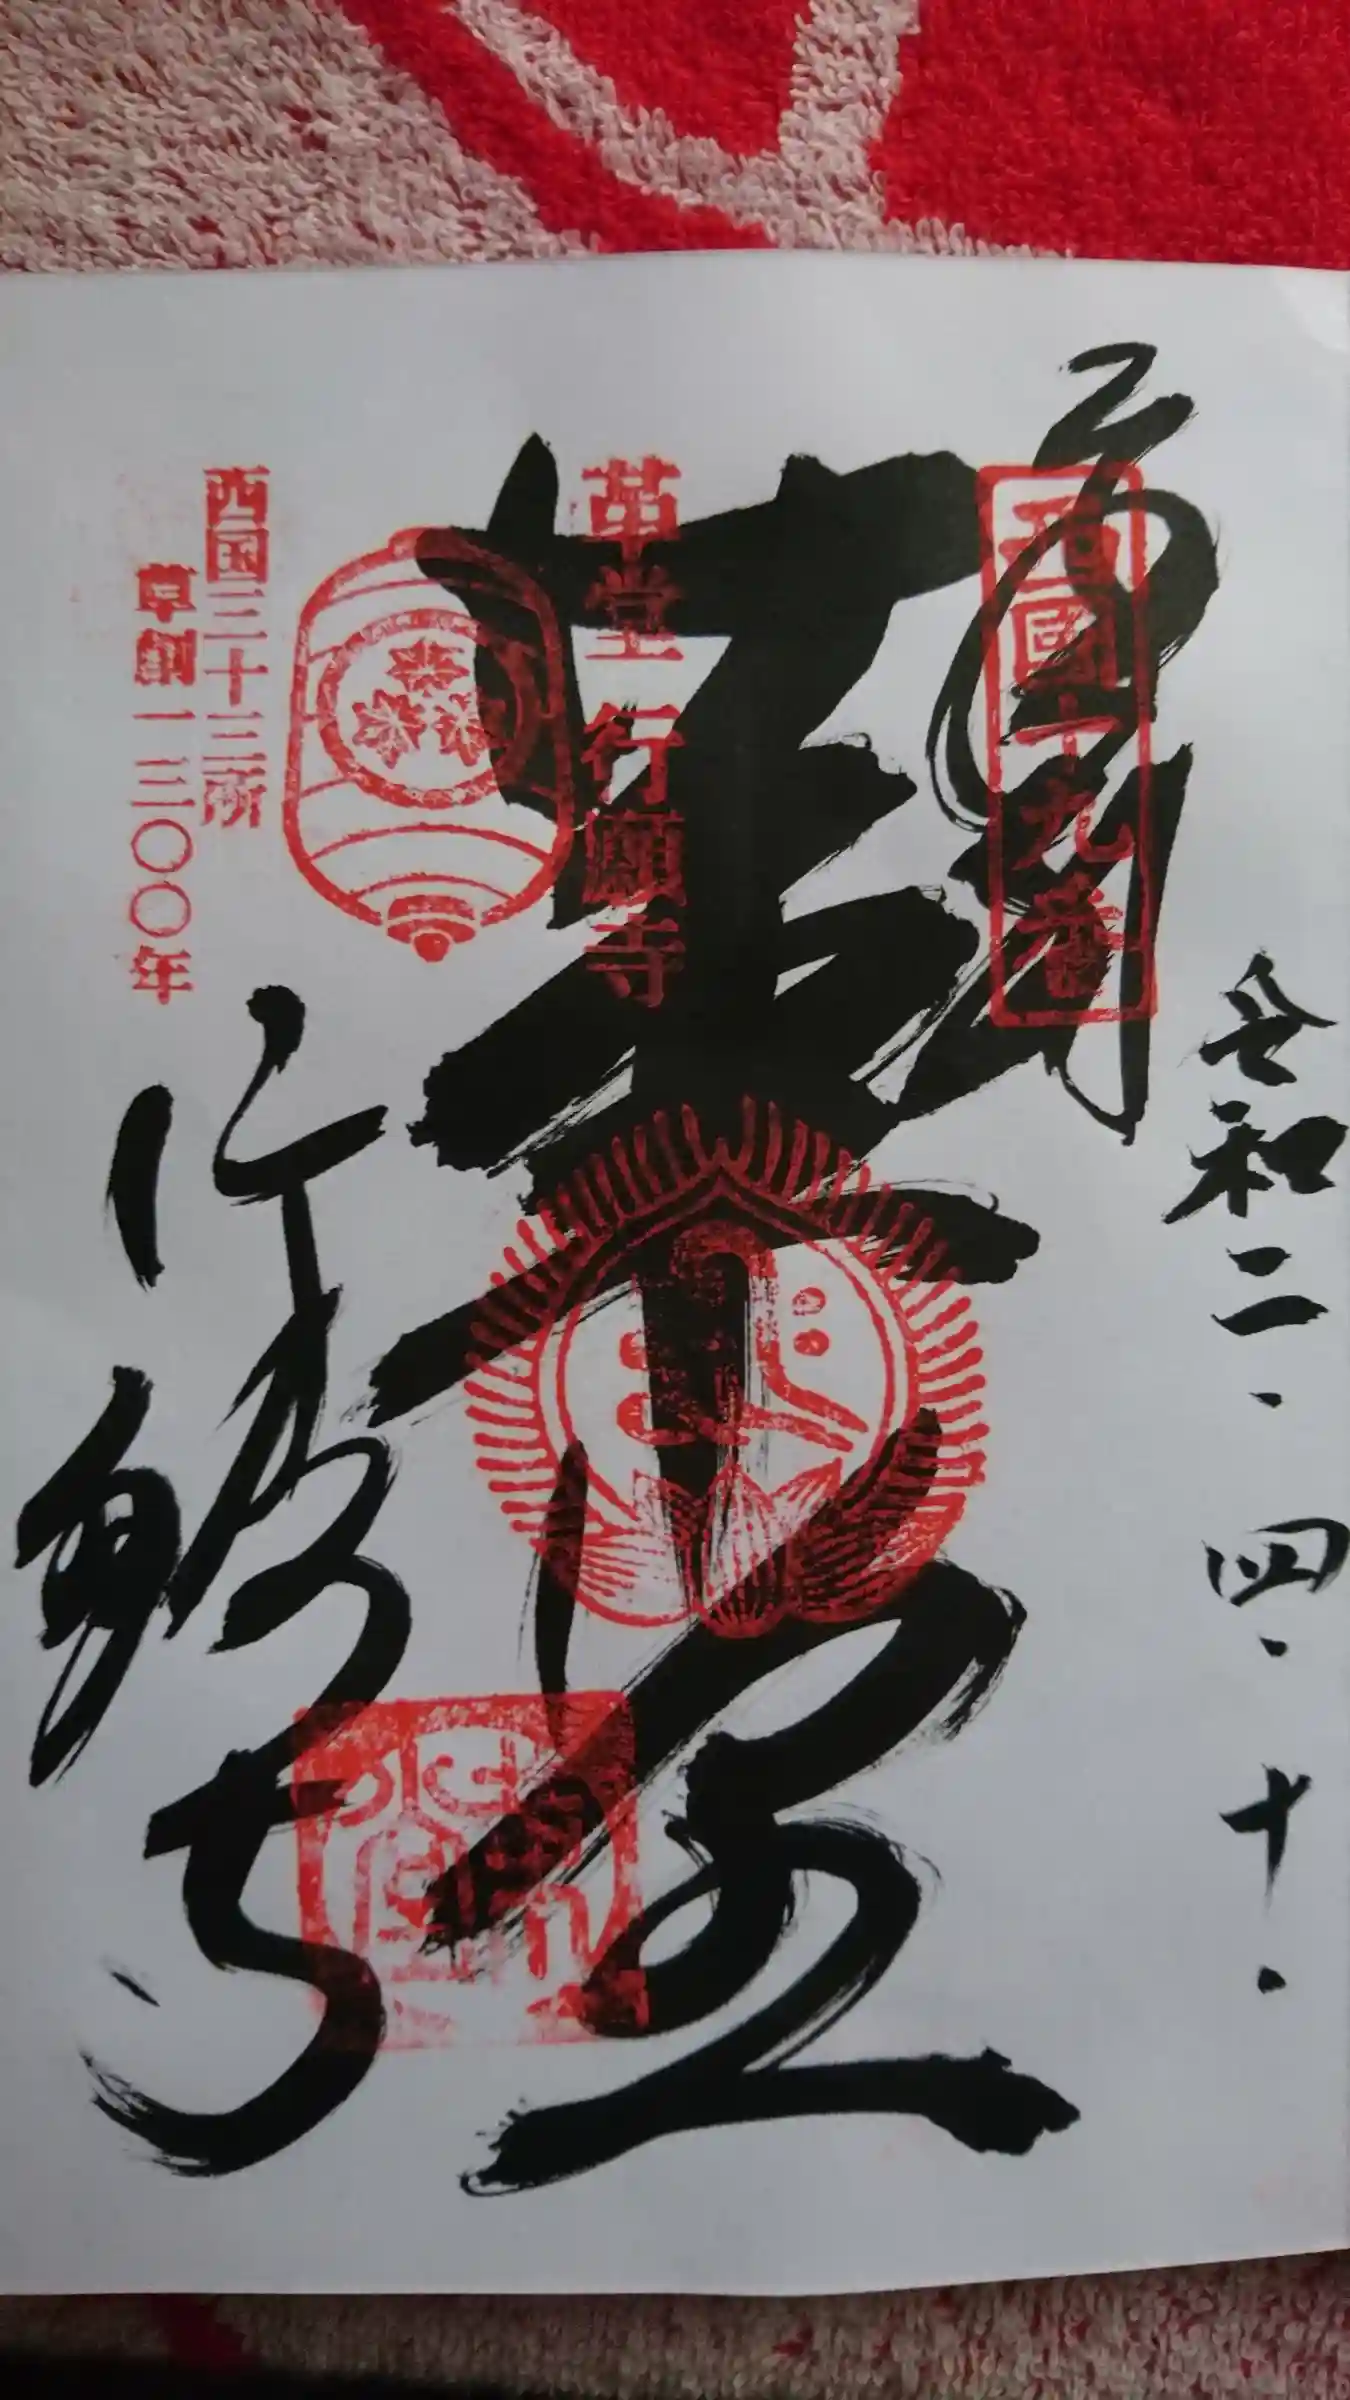 令和二・四・十・
奉拝
西國十九番
革堂
革堂行願寺
西国三十三所
草創一三〇〇年
行願寺